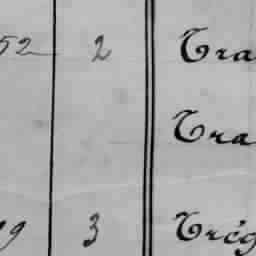 52 2 Tra
Tra
99 3 Trég